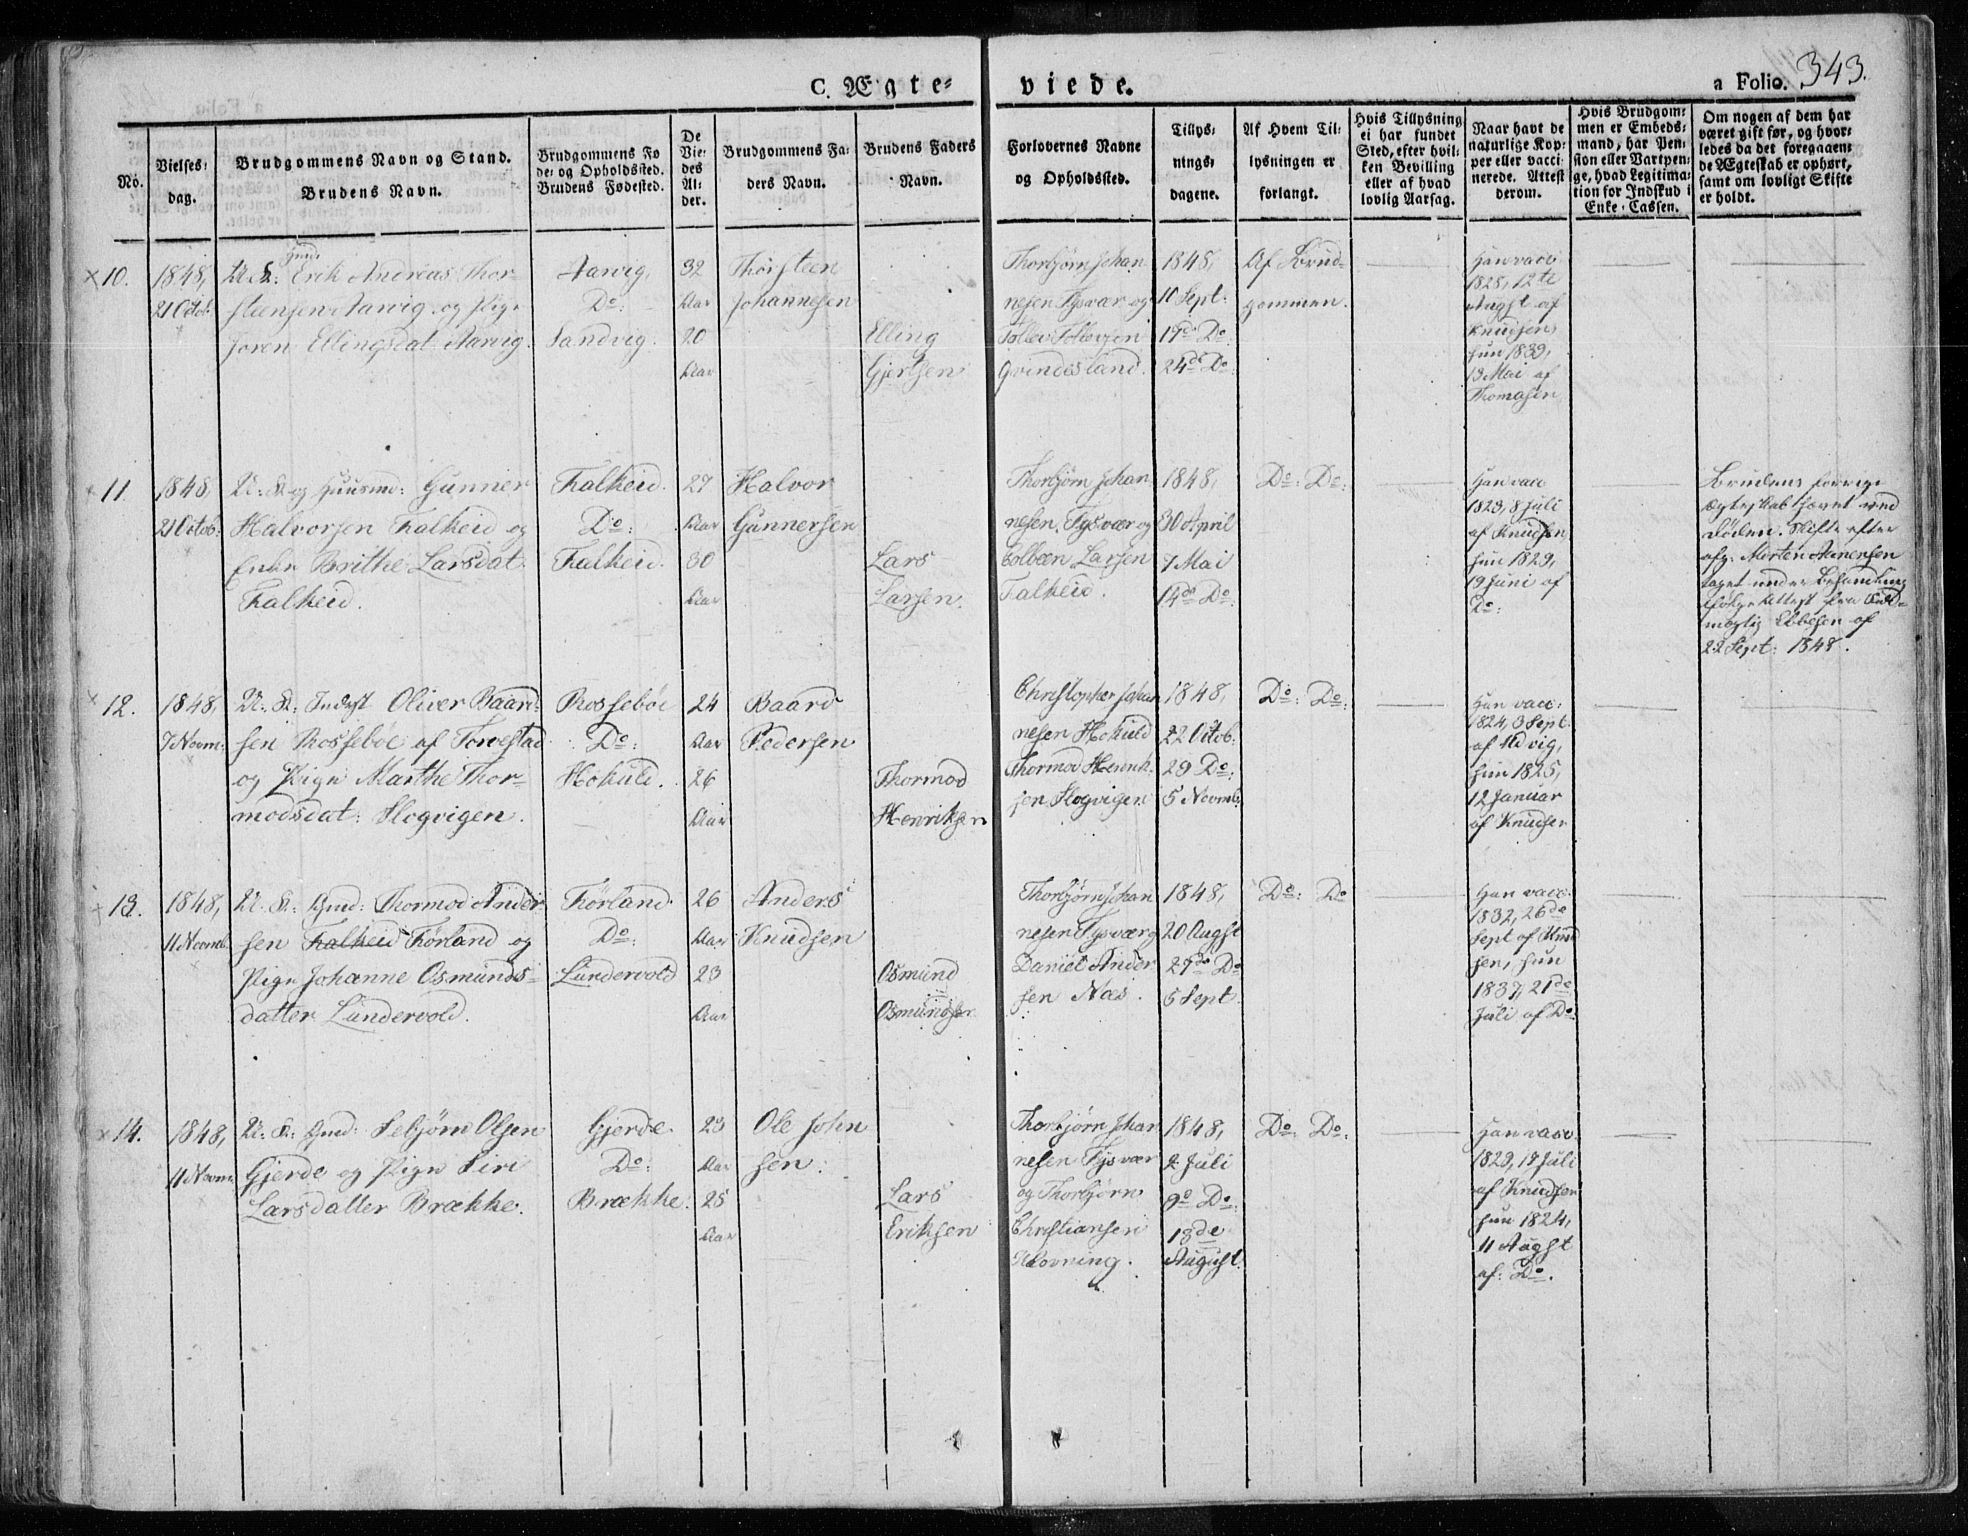 C. Ægte-
viede.
a Folio. 343.
No.
Vielses-
dag.
Brudgommens Navn og Stand.
Brudens Navn.
Brudgommens Fø
de- og Opholdssted.
Brudens Fødested.
De
Vie-
des
Al-
der.
Brudgommens Fa-
ders Navn.
Brudens Faders
Navn.
Forlovernes Navne
og Opholdssted.
Tillys-
nings-
dagene.
Af Hvem Til-
lysningen er
forlangt.
Hvis Tillysning
ei har fundet
Sted, efter hvil-
ken Bevilling
eller af hvad
lovlig Aarsag.
Naar havt de
naturlige Kop-
per eller vacci-
nerede. Attest
derom.
Hvis Brudgom-
men er Embeds-
mand, har Pen-
sion eller Vartpen-
ge, hvad Legitima-
tion for Indskud i
Enke-Cassen.
Om nogen af dem har
været gift før, og hvor-
ledes da det foregaaen-
de Ægteskab er ophørt,
samt om lovligt Skifte
er holdt.
× 10.
1848,
21 Octob:
Erik Andreas Thor-
steensen Aarvig og Pige
Ellingsdat. Aarvig.
Aarvig.
Do:
Sandvig.
32
Aar
20
Aar
Thorsteen
Johannesen
Elling
Gjertsen
Thorbjørn Johan
nesen Tysvær og
Tollev Tollevsen
Qvindesland.
1848,
10 Sept:
17de Do:
24de Do:
Af Brud-
gommen.
Han vacc
1828, 12te
Augst af
Knudsen,
hun 1839,
13 Mai af
Thomasen
× 11.
1848,
21 Octob:
U: K: og Huusmd: Gunner
Halvorsen Falkeid og
Enke Brithe Larsdat.
Falkeid.
Falkeid.
Do:
Falkeid.
27
Aar
30
Aar
Halvor
Gunnersen
Lars
Larsen.
Thorbjørn Johan
nesen Tysvær og
Larsen
Falkeid.
1848,
30 April
7 Mai
14de Do:
Do: Do:
Han vacc
1823, 8 Juli
af Knudsen
hun 1829,
19 Juni af
Do:
Brudens forrige
Ægteskab hævet ved
Døden. Skifte efter
afg: Morten Aanensen
taget under Behandling
ifølge Attest fra Fuld-
mægtig Ebbesen af
22 Sept: 1848.
× 12.
1848,
7 Novm:
U: K: Inderst Oliver Baard-
sen Rossebøe af Torvestad
og Pige Marthe Thor-
modsdat: Slogvigen.
Rossebøe
Do:
Hokuld.
24
Aar
26
Aar
Baard
Pedersen
Thormod
Henriksen
Christopher Johan
nesen Hokuld
Thormod Henrik-
sen Slogvigen
1848,
22 Octob:
29 Do:
5 Novmb:
Do: Do:
Han vacc:
1824, 3 Sept.
af Udvig,
hun 1825,
12 Januar
af Knudsen
× 13.
1848,
11 Novmb.
U: K: Gmd: Thormod Ander
sen Falkeid Førland og
Pige Johanne Osmunds-
datter Lundervold.
Førland.
Do:
Lundervold
26
Aar
23
Aar
Anders
Knudsen
Osmund
Osmundsen
Thorbjørn Johan
nesen Tysvær og
Daniel Ander
sen Næs.
1848,
20 Augst
27de Do
5 Sept
Do: Do
Han vacc.
1832, 26de
Sept af Knud
sen, hun
1837, 21de
Juli af Do
× 14.
1848,
11 Novm:
U: K: Gmd: Sebjørn Olsen
Gjerde og Pige Siri
Larsdatter Brække.
Gjerde.
Do:
Brække.
23
Aar
25
Aar
Ole John
sen.
Lars
Eriksen
Thorbjørn Johan
nesen Tysvær
og Thorbjørn
Christiansen
1848,
2 Juli
9de Do:
13de
August.
Do: Do:
Han vacc.
1829, 18 Juli
af Knudsen
hun 1824,
11 Augst
af: Do.